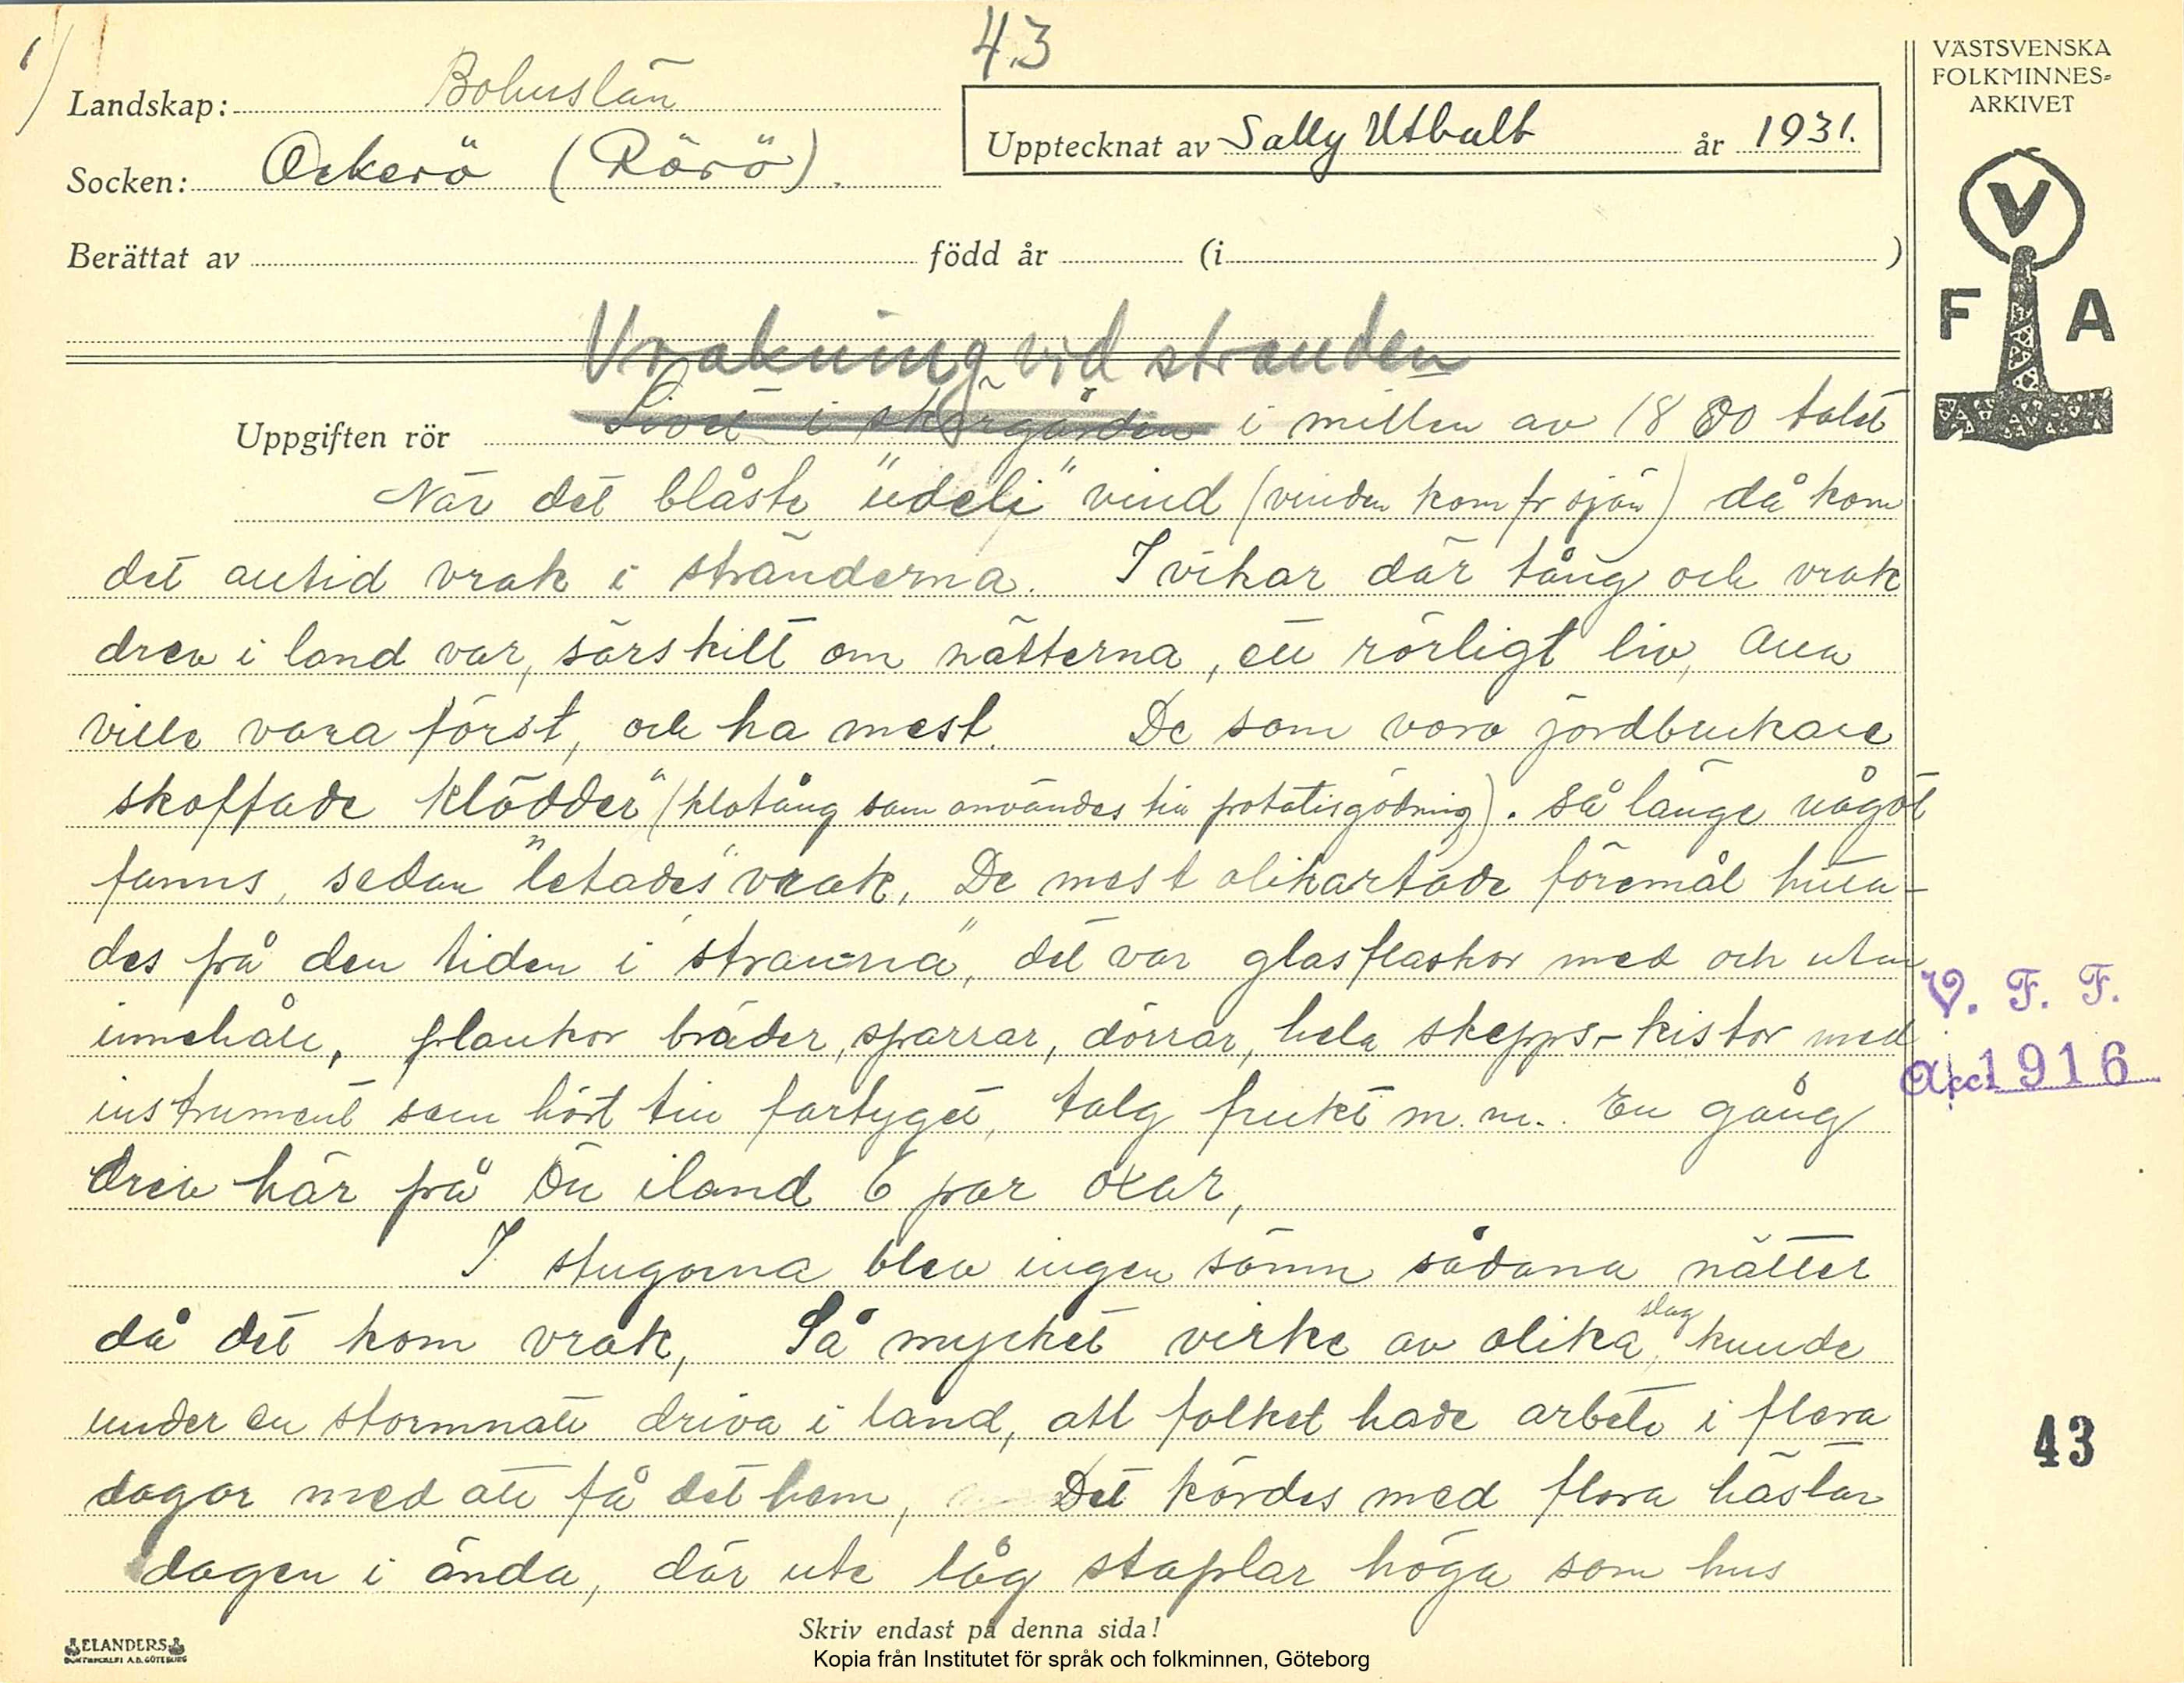 1)
43
VÄSTSVENSKA
FOLKMINNES=
ARKIVET
Landskap: Bohuslän
Socken: Öckerö (Rörö).
Upptecknat av Sally Utbult år 1931.
Berättat av född år (i )
V
F A
Vrakning vid stranden
Uppgiften rör Livet i skärgården i mitten av 1880 talet
När det blåste "udeli" vind (vinden kom fr sjön) då kom
det alltid vrak i stränderna. I vikar där tång och vrak
drev i land var, särskilt om nätterna, ett rörligt liv, alla
ville vara först, och ha mest. De som voro jordbrukare
skoffade "klödder" (klotång som användes till potatisgödning). Så länge något
fanns, sedan "letades" vrak. De mest olikartade föremål hitta-
des på den tiden i "stranna", det var glasflaskor med och utan
innehåll, plankor bräder, sparrar, dörrar, hela skepps-kistor med
instrument som hört till fartyget, talg frukt m.m.. En gång
drev här på Ön iland 6 par oxar,
I stugorna blev ingen sömn sådana nätter
då det kom vrak, Så mycket virke av olika slag kunde
under en stormnatt driva i land, att folket hade arbete i flera
dagar med att få det hem, Det kördes med flera hästar
dagen i ända, där ute låg staplar höga som hus
V. F. F.
Acc 1916
43
Skriv endast på denna sida!
ELANDERS
BOKTRYCKERI A.B. GÖTEBORG
Kopia från Institutet för språk och folkminnen, Göteborg